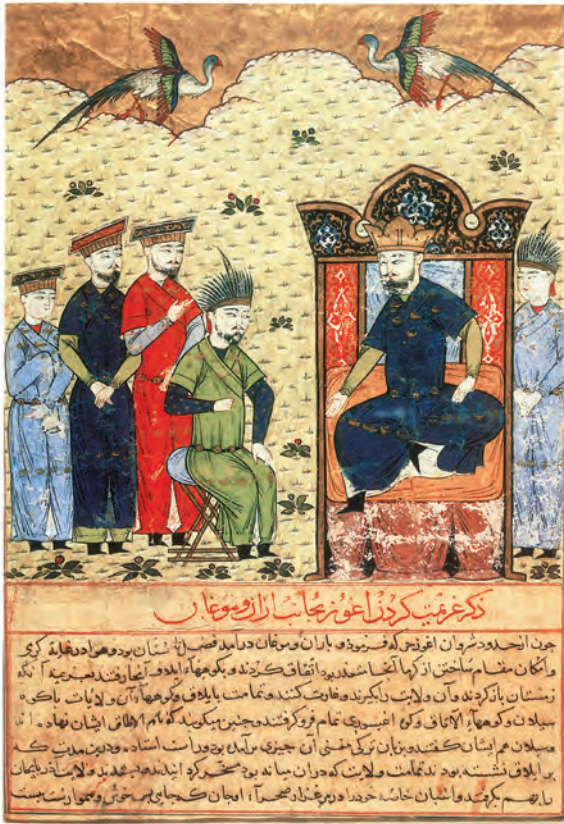 ذکر عزیمت کردن اغوز بجانب اران و موغان
چون از حدود شروان اغوز حرکت فرمود و باران و موغان درآمد فصل تابستان بود و هوا در غایة گرمی
و امکان مقام ساختن از گرما آنجا اتفاق کردند و بکوهها رفتند بعزیمت آنکه
زمستان باز کردند و آن ولایت را بگیرند و غارت کنند و تمامت یایلاق و کوهها آن ولایات تا کوه
سبلان و کوهها الاتاق و کوه تمام فرو گرفتند و چنین میکویند که نام الاطاق ایشان نهاده اند
و سبلان هم ایشان گفتند و بزبان ترکی معنی آن چیزی برآمده بود و راست استاده و درین مدت که
بر ایلاق نشسته بودند تمامت ولایت که دران میانه بود مسخر کردانیدند و ولایت آذربایجان
را بهم بگرفتند و اسبان خاصه خود را در مرغزار صحرا اوجان که جای بس خوش و هموارست ببست